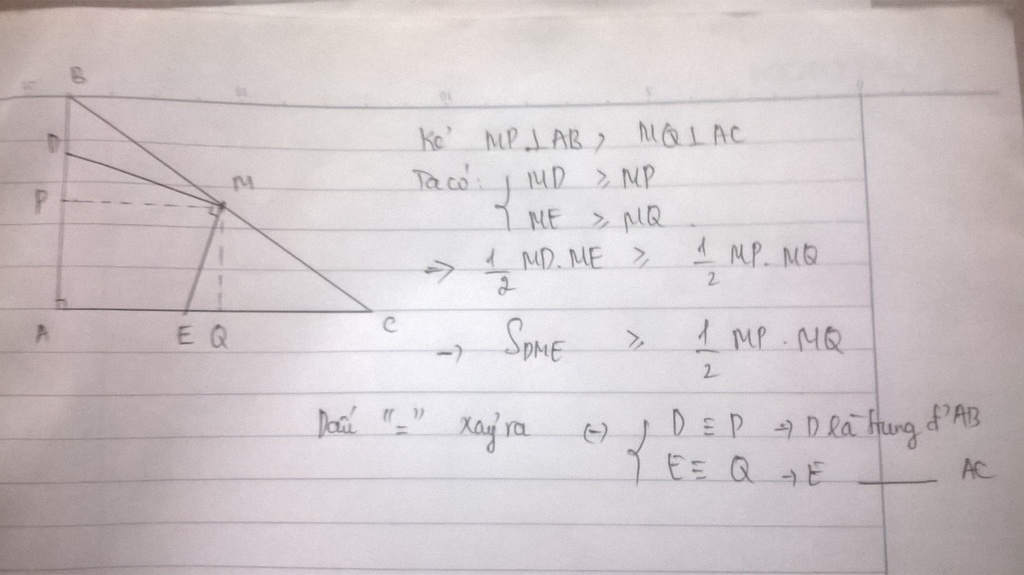 B
D
M
P
A
E Q
C
Kẻ MP⊥AB, MQ⊥AC
Ta có: { MD ≥ MP
ME ≥ MQ.
=> 1/2 MD.ME ≥ 1/2 MP.MQ
→ S_DME ≥ 1/2 MP.MQ
Dấu "=" xảy ra <=> { D ≡ P => D là trung đ' AB
E ≡ Q → E ____ AC